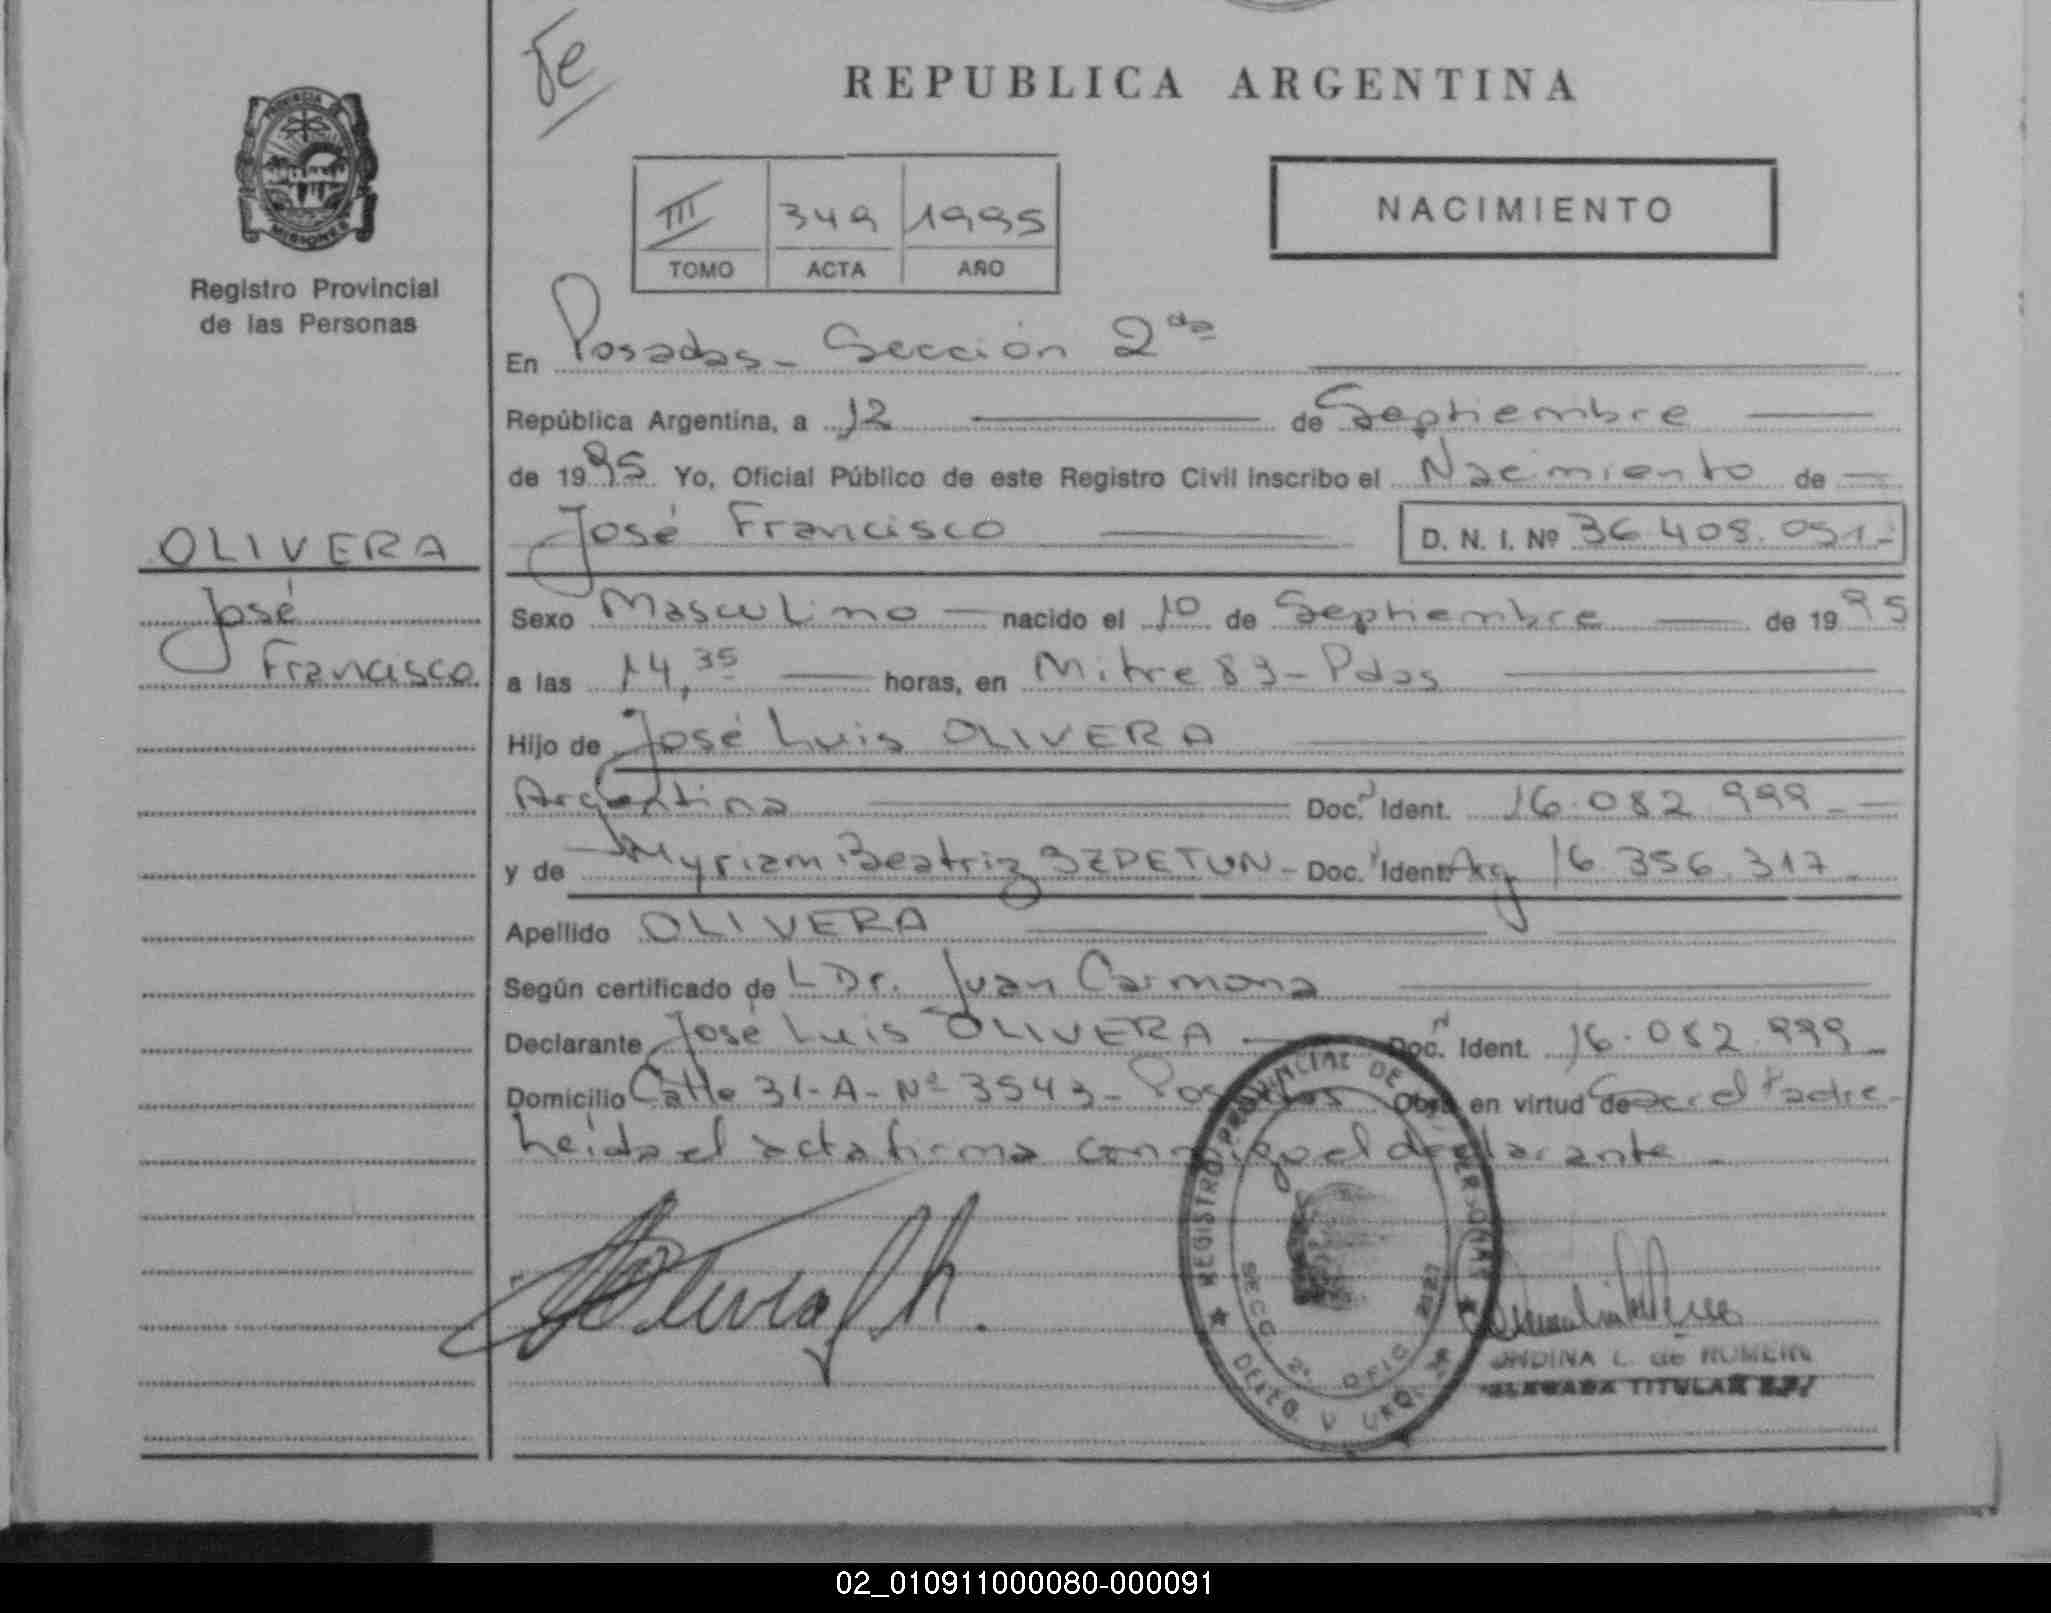 Je
REPUBLICA ARGENTINA
PROVINCIA DE
MISIONES
Registro Provincial
de las Personas
III 349 1995
TOMO ACTA AÑO
NACIMIENTO
En Posadas - Sección 2da
República Argentina, a 12 de Septiembre
de 1995 Yo, Oficial Público de este Registro Civil inscribo el Nacimiento de
José Francisco D. N. I. Nº 36.408.051.-
OLIVERA
José
Francisco
Sexo Masculino nacido el 10 de Septiembre de 1995
a las 14,35 horas, en Mitre 83 - Pdas
Hijo de José Luis OLIVERA
Argentina Doc. Ident. 16.082.999.-
y de Myriam Beatriz Doc. Ident. Arg 16.356.317.-
Apellido OLIVERA
Según certificado de L Dr. Juan Carmona
Declarante José Luis OLIVERA Doc. Ident. 16.082.999.-
Domicilio Calle 31-A-Nº 3543 - Posadas Obra en virtud de Ser el Padre-
Leida el acta firma conmigo el declarante -
REGISTRO PROVINCIAL DE LAS PERSONAS
SECC. 2ª OFIC. 2127
DEPTO.
ONDINA L. de
TITULAR
02_010911000080-000091